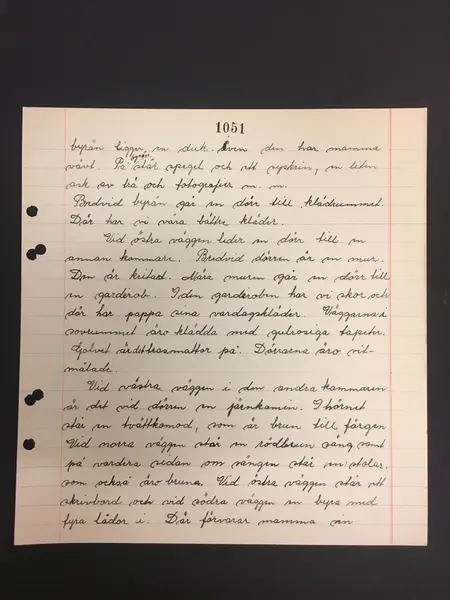 1051
byrån ligger en duk. Även den har mamma
vävt. På byrån står spegel och ett syskrin, en liten
ask av trä och fotografier m. m.
Bredvid byrån går en dörr till klädrummet.
Där har vi våra bättre kläder.
Vid östra väggen leder en dörr till en
annan kammare. Bredvid dörren är en mur.
Den är kritad. Nära muren går en dörr till
en garderob. I den garderoben har vi skor och
där har pappa sina vardagskläder. Väggarna i
sovrummet äro klädda med gulrosiga tapeter.
Golvet är det trasmattor på. Dörrarna äro vit-
målade.
Vid västra väggen i den andra kammaren
är det vid dörren en järnkamin. I hörnet
står en tvättkomod, som är brun till färgen
Vid norra väggen står en rödbrun säng samt
på vardera sidan om sängen står en stolar,
som också äro bruna. Vid östra väggen står ett
skrivbord och vid södra väggen en byrå med
fyra lådor i. Där förvarar mamma sin